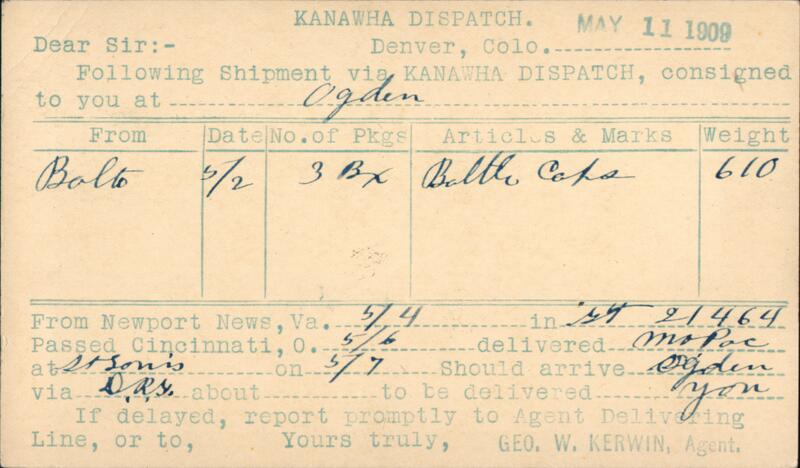 KANAWHA DISPATCH.
MAY 11 1909
Dear Sir:- Denver, Colo.
Following Shipment via KANAWHA DISPATCH, consigned
to you at Ogden
From Date No. of Pkgs Articles & Marks Weight
Balto 5/2 3 Bx Bottle Caps 610
From Newport News, Va. 5/4 in 21464
Passed Cincinnati, O. 5/6 delivered MoPac
at St Louis on 5/7 Should arrive Ogden
via D.R.G. about to be delivered you
If delayed, report promptly to Agent Delivering
Line, or to, Yours truly, GEO. W. KERWIN, Agent.